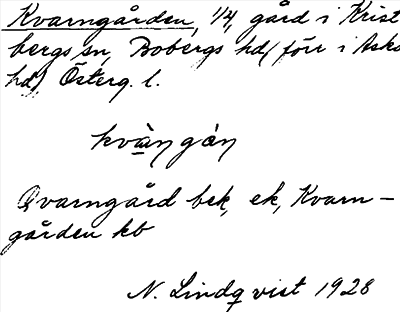 Kvarngården, 1/4, gård i Krist
bergs sn, Bobergs hd (förr i Aska
hd) Österg. l.
kvàn gån
Qvarngård bek, ek, Kvarn-
gården kb
N. Lindqvist 1928